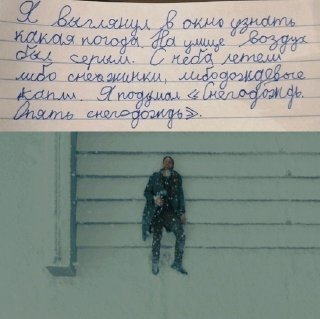 Я выглянул в окно узнать
какая погода. На улице воздух
был серым. С неба летели
либо снежинки, либо дождевые
капли. Я подумал «Снегодождь.
Опять снегодождь».